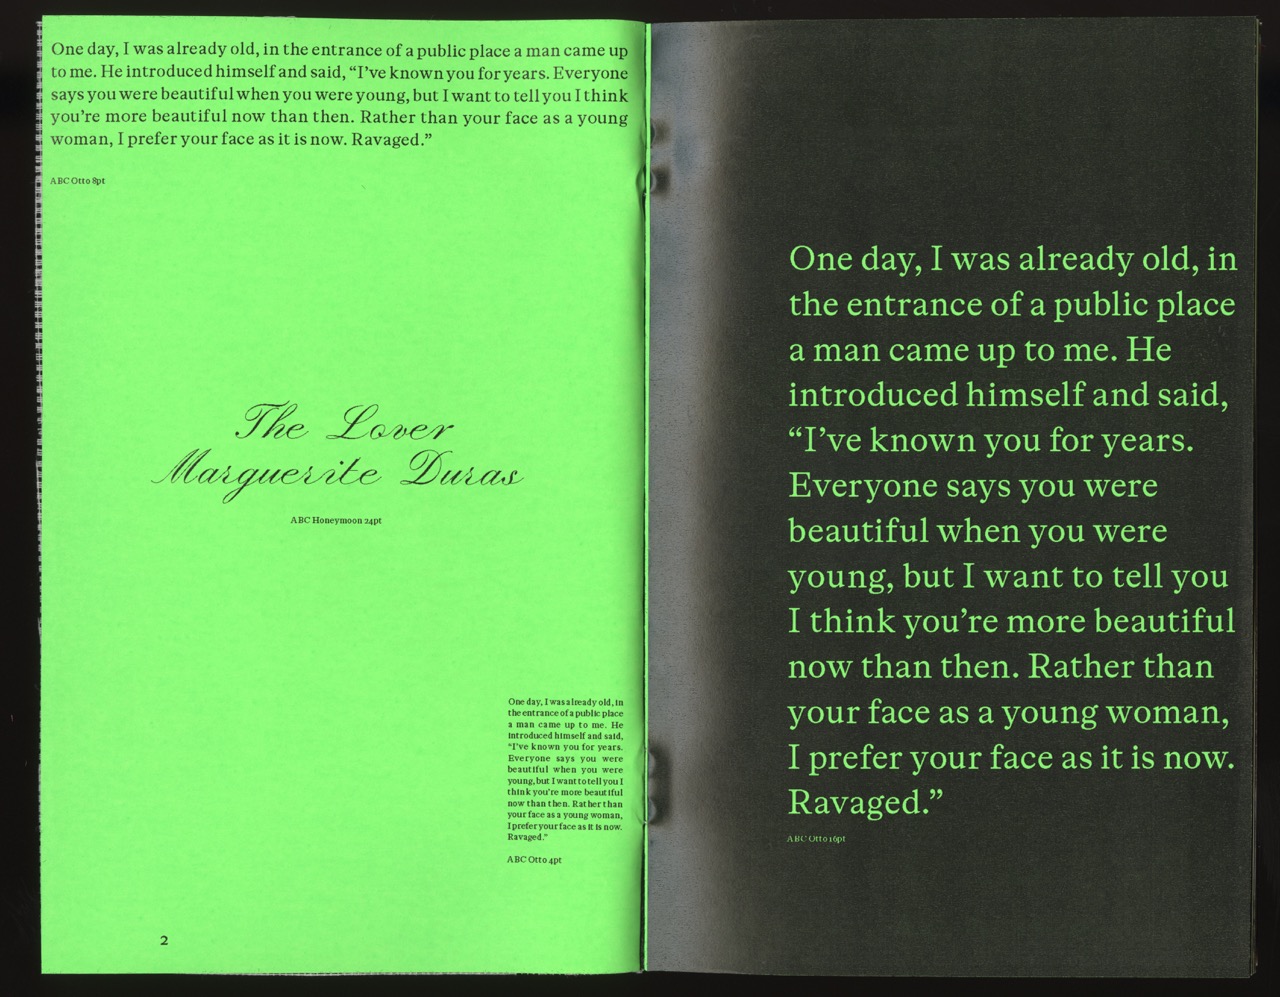 One day, I was already old, in the entrance of a public place a man came up
to me. He introduced himself and said, “I’ve known you for years. Everyone
says you were beautiful when you were young, but I want to tell you I think
you’re more beautiful now than then. Rather than your face as a young
woman, I prefer your face as it is now. Ravaged.”
ABC Otto 8pt
The Lover
Marguerite Duras
ABC Honeymoon 24pt
One day, I was already old, in
the entrance of a public place
a man came up to me. He
introduced himself and said,
“I’ve known you for years.
Everyone says you were
beautiful when you were
young, but I want to tell you I
think you’re more beautiful
now than then. Rather than
your face as a young woman,
I prefer your face as it is now.
Ravaged.”
ABC Otto 4pt
2
One day, I was already old, in
the entrance of a public place
a man came up to me. He
introduced himself and said,
“I’ve known you for years.
Everyone says you were
beautiful when you were
young, but I want to tell you
I think you’re more beautiful
now than then. Rather than
your face as a young woman,
I prefer your face as it is now.
Ravaged.”
ABC Otto 16pt